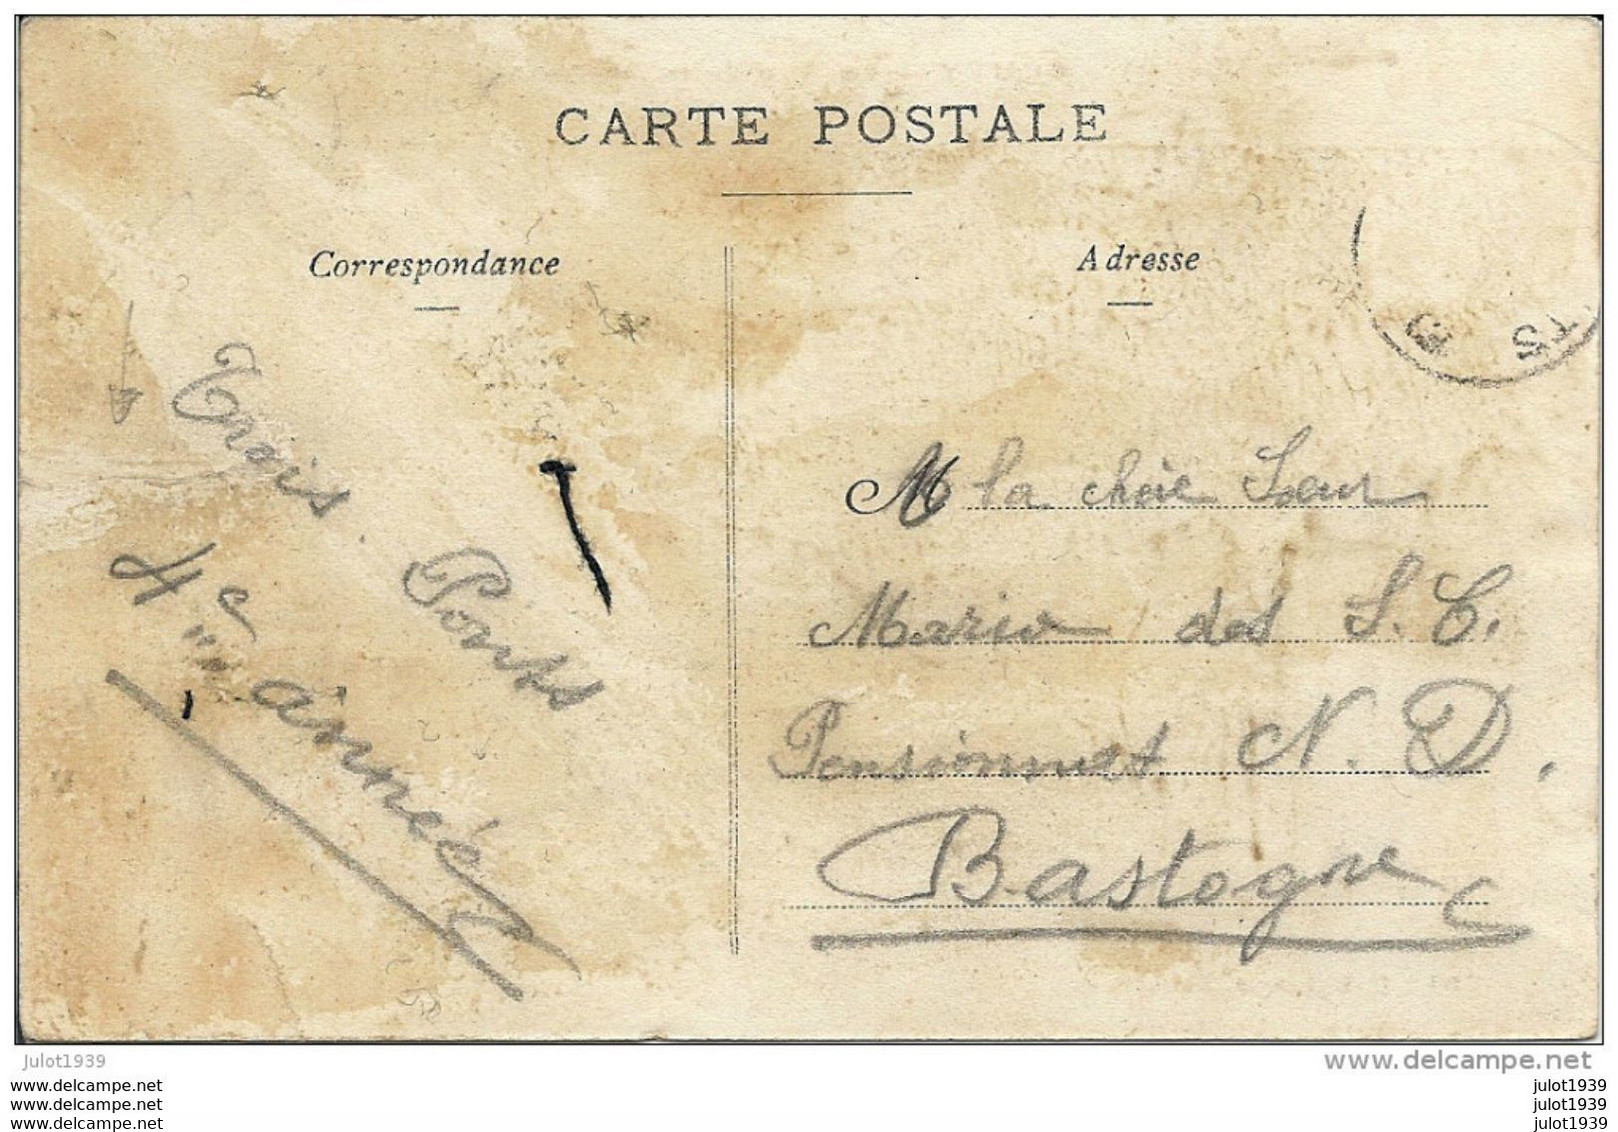 CARTE POSTALE
Correspondance
Adresse
Trois. Ponts
4e année
M la chère Sœur
Marie des S. C.
Pensionnat N. D.
Bastogne
TS
julot1939
www.delcampe.net
www.delcampe.net
www.delcampe.net
www.delcampe.net
julot1939
julot1939
julot1939